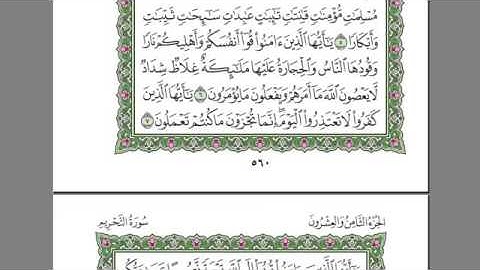 مُسْلِمَٰتٍ مُّؤْمِنَٰتٍ قَٰنِتَٰتٍ تَٰٓئِبَٰتٍ عَٰبِدَٰتٍ سَٰٓئِحَٰتٍ ثَيِّبَٰتٍ
وَأَبْكَارًا ٥ يَٰٓأَيُّهَا ٱلَّذِينَ ءَامَنُوا۟ قُوٓا۟ أَنفُسَكُمْ وَأَهْلِيكُمْ نَارًا
وَقُودُهَا ٱلنَّاسُ وَٱلْحِجَارَةُ عَلَيْهَا مَلَٰٓئِكَةٌ غِلَاظٌ شِدَادٌ
لَّا يَعْصُونَ ٱللَّهَ مَآ أَمَرَهُمْ وَيَفْعَلُونَ مَا يُؤْمَرُونَ ٦ يَٰٓأَيُّهَا ٱلَّذِينَ
كَفَرُوا۟ لَا تَعْتَذِرُوا۟ ٱلْيَوْمَ إِنَّمَا تُجْزَوْنَ مَا كُنتُمْ تَعْمَلُونَ ٧
٥٦٠
الجُزْءُ الثَّامِنُ وَالعِشْرُونَ سُورَةُ التَّحْرِيمِ